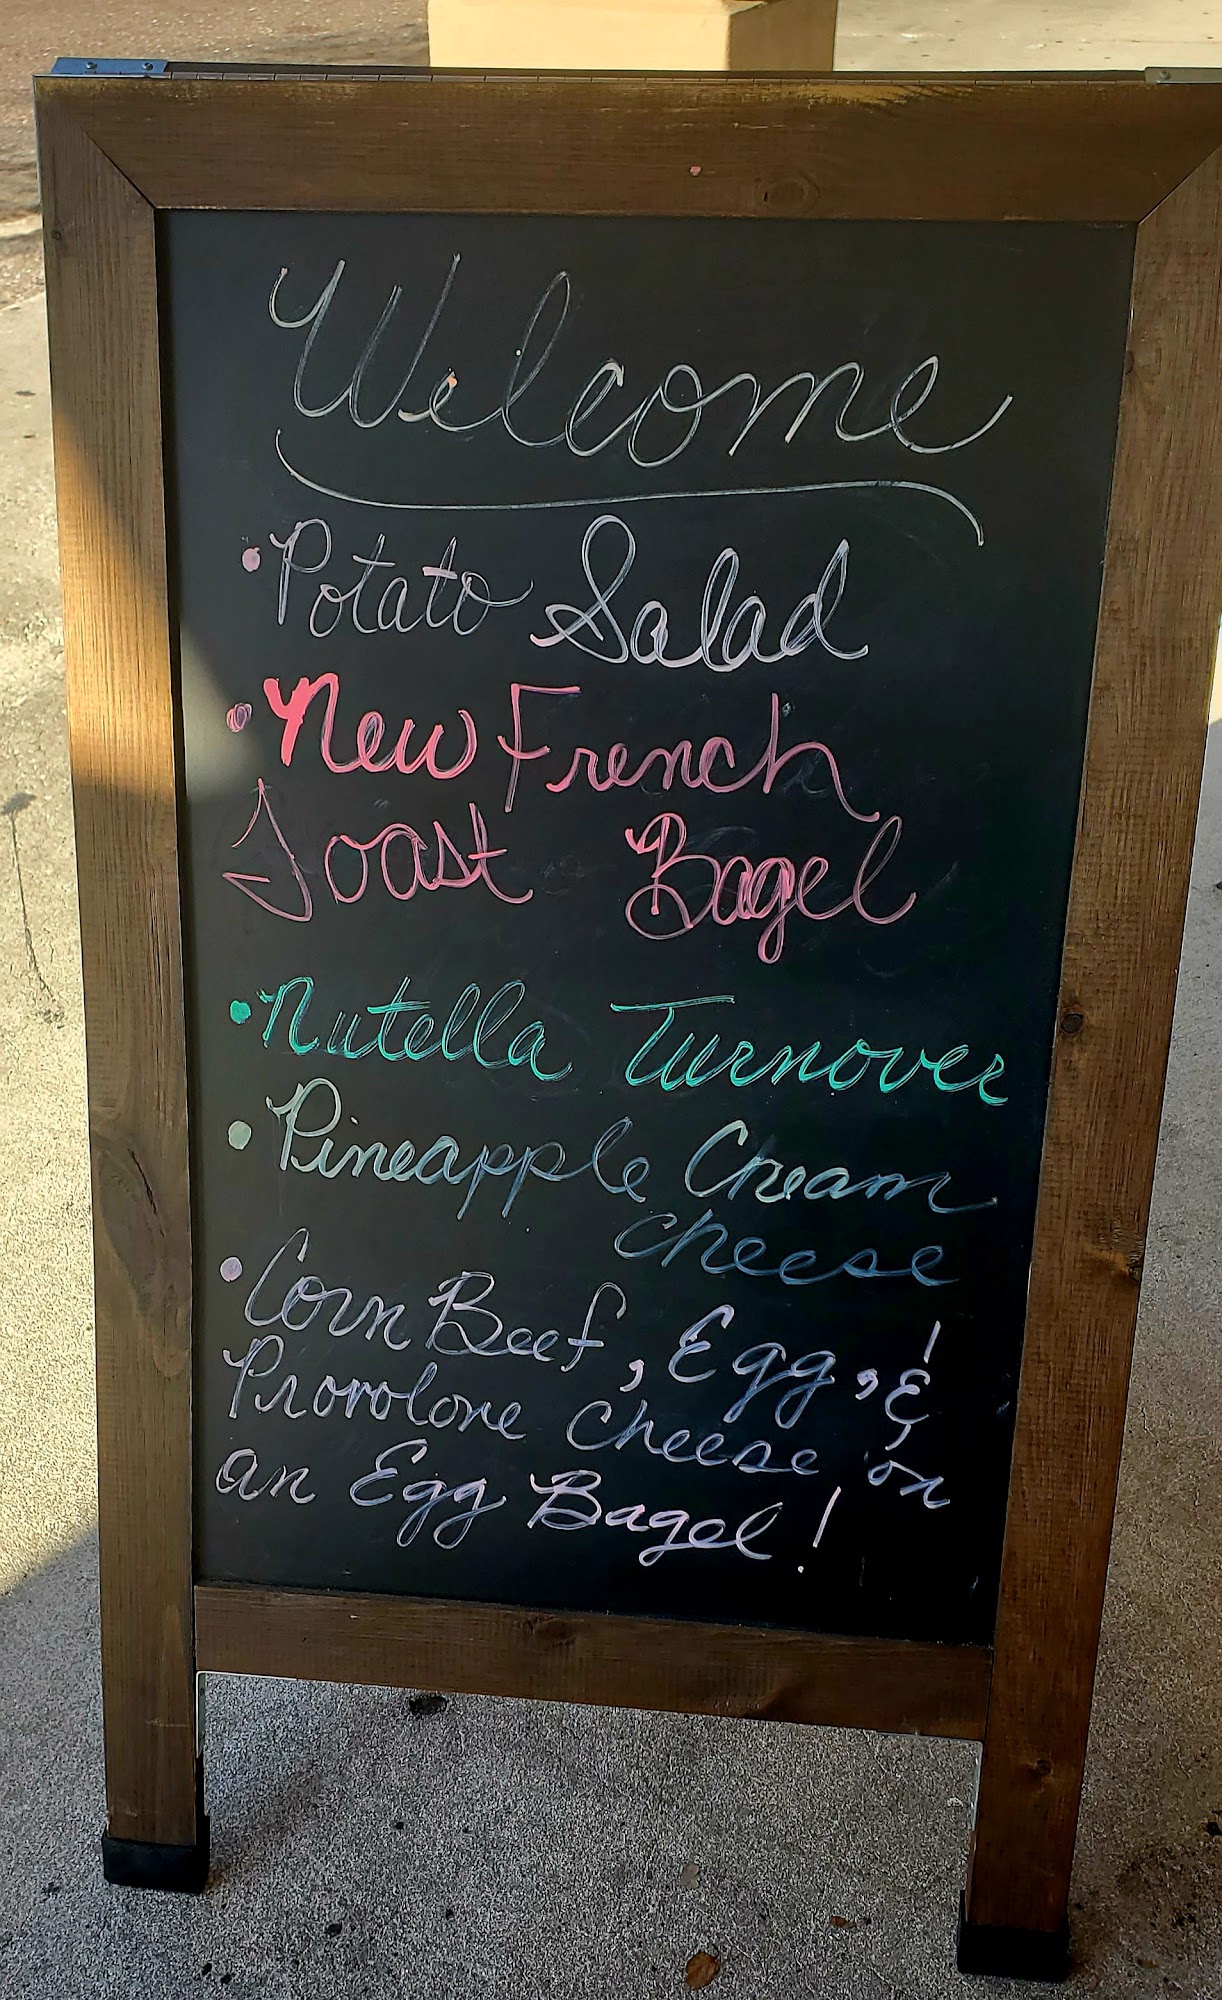 Welcome
• Potato Salad
• New French
Toast Bagel
• Nutella Turnover
• Pineapple Cream
cheese
• Corn Beef, Egg, &
Provolone cheese on
an Egg Bagel!